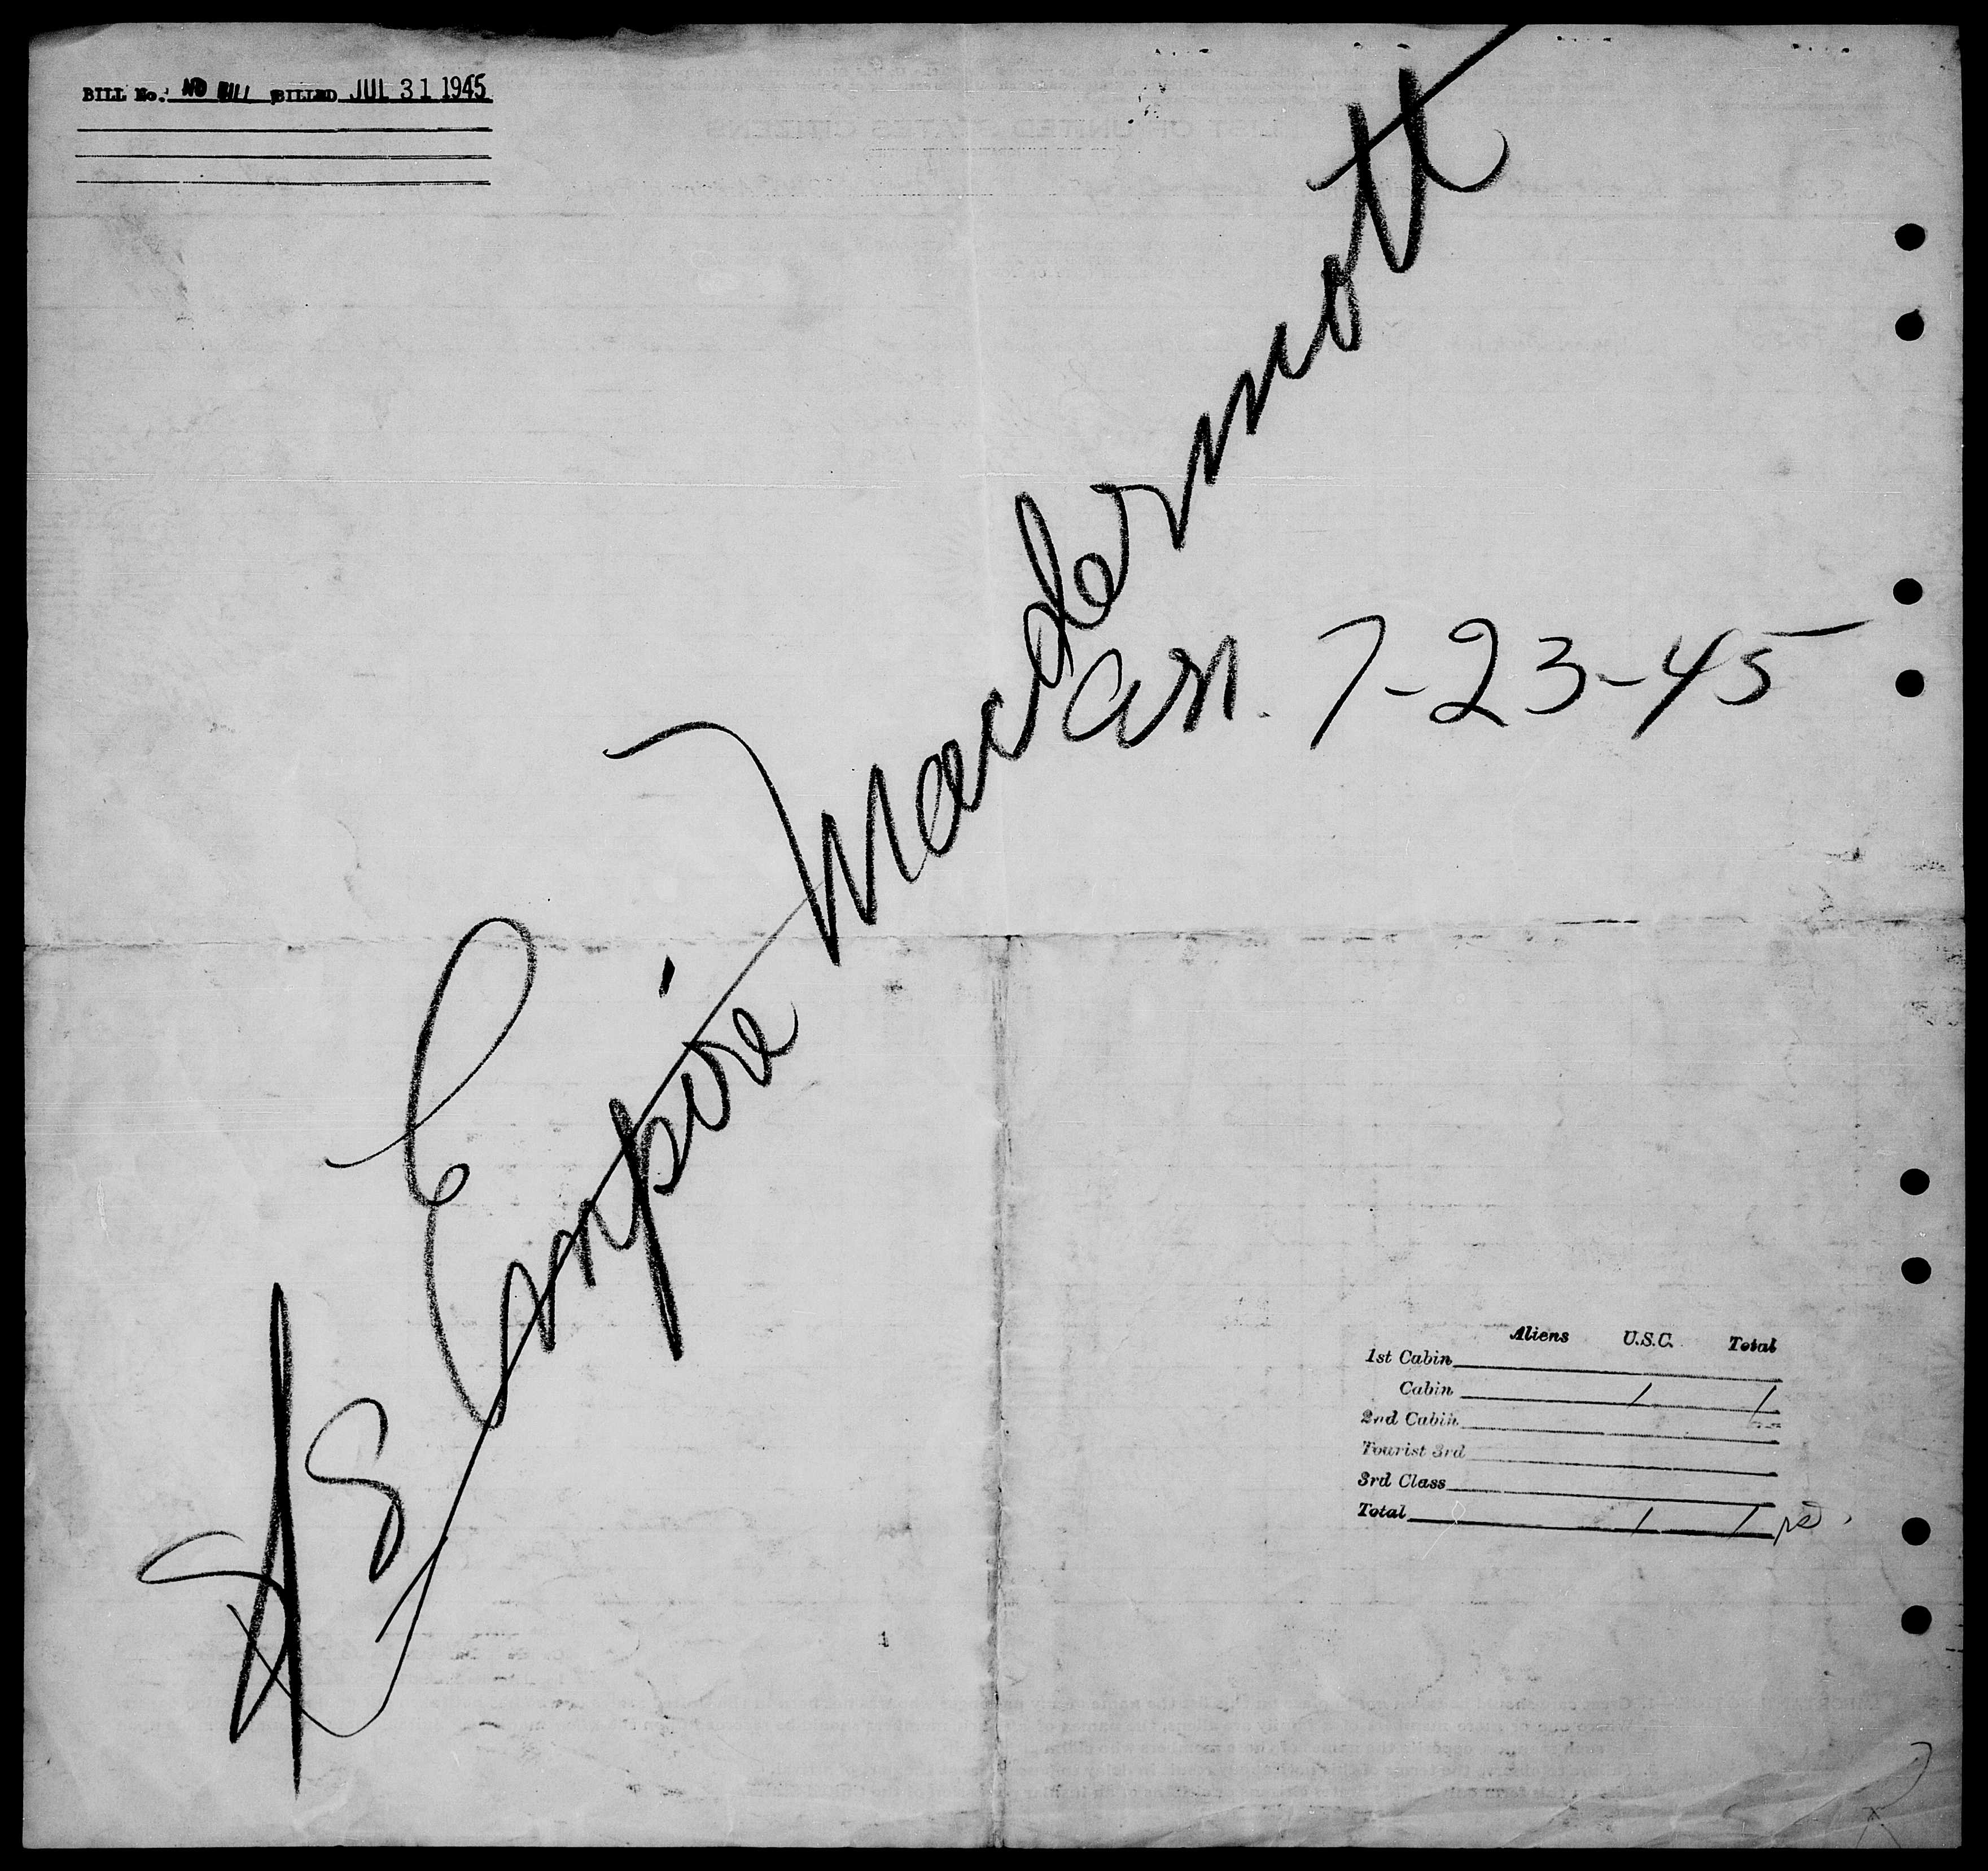 BILL No. NO BILL BILLED JUL 31 1945
SS Empire Macdermott
arr. 7-23-45
Aliens U.S.C. Total
1st Cabin
Cabin 1 1
2nd Cabin
Tourist 3rd
3rd Class
Total 1 1